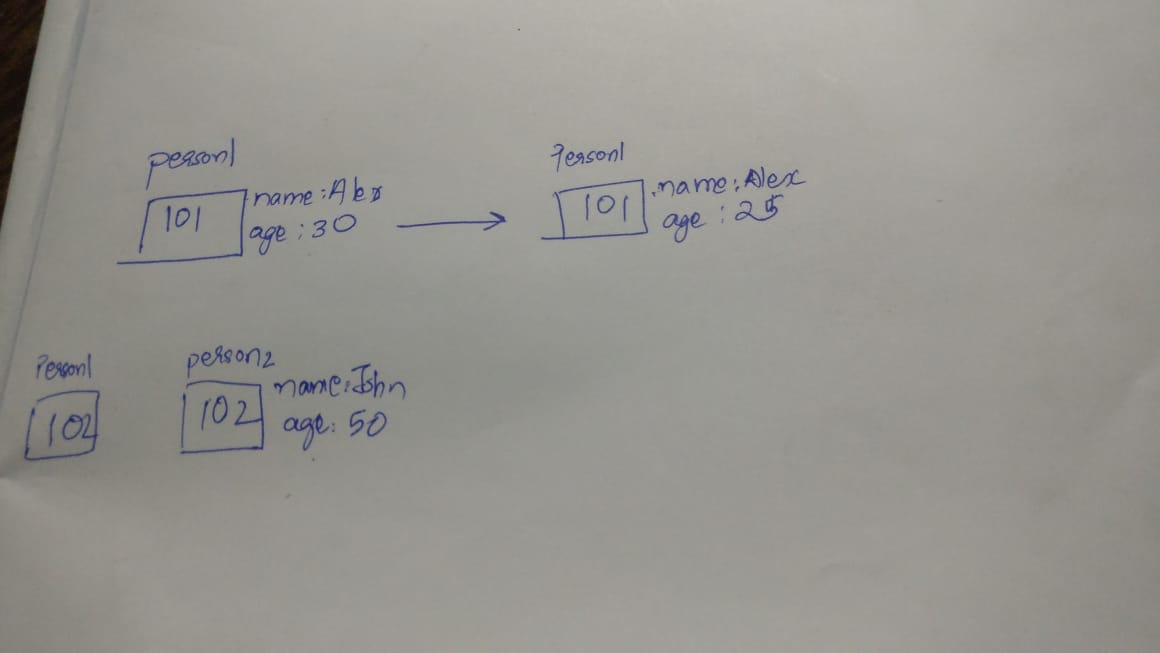 person1
101
name:Alex
age:30
Person1
101
name:Alex
age:25
Person1
102
person2
102
name:John
age:50